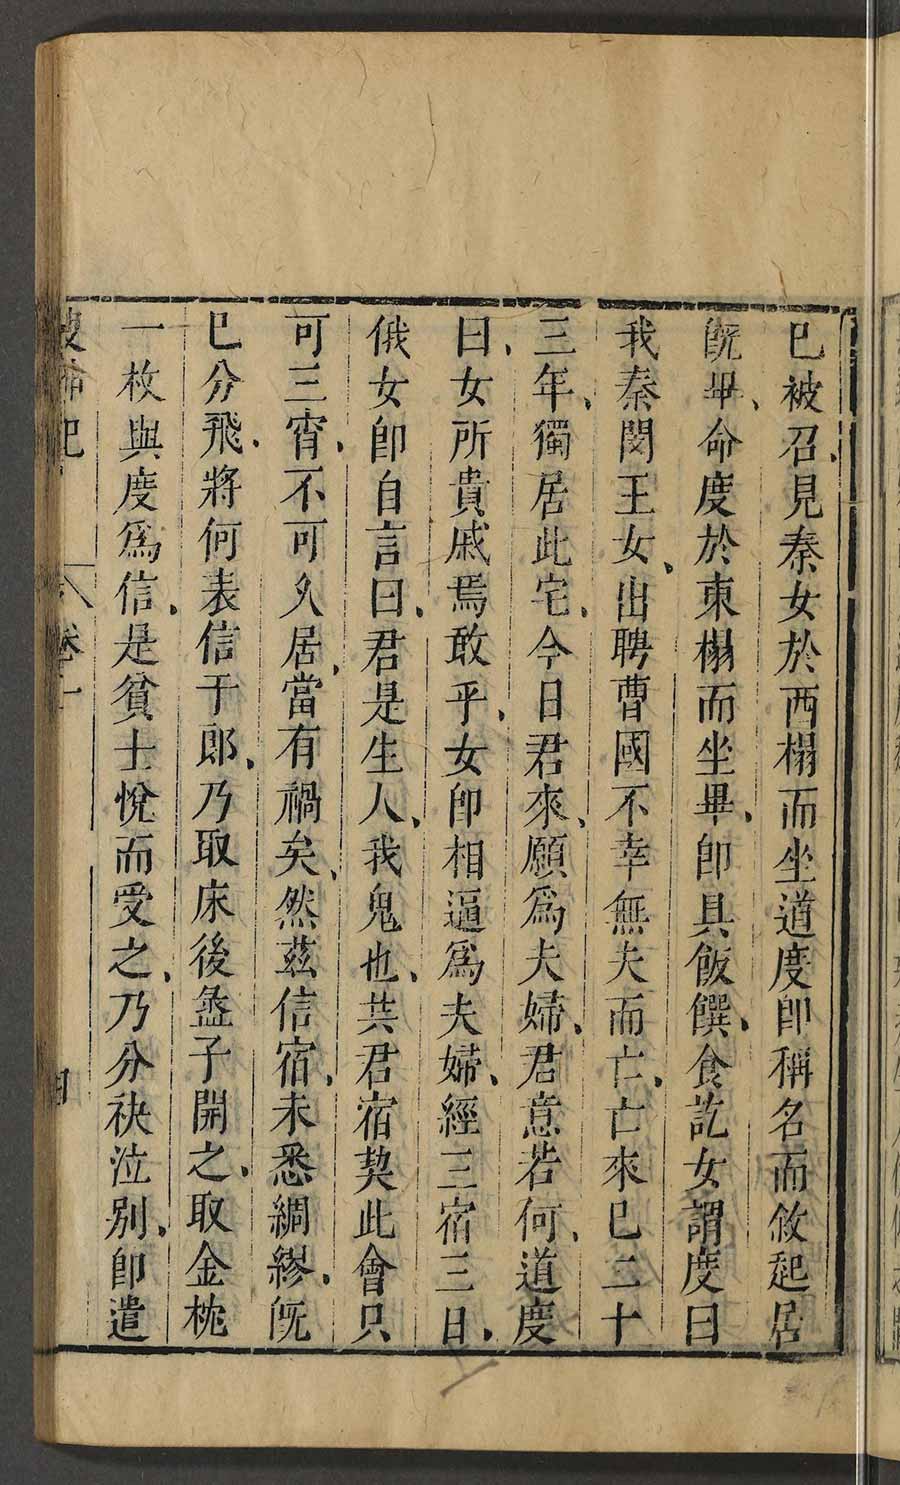 已被召見秦女於西榻而坐道度卽稱名而敘起居
旣畢、命度於東榻而坐畢、卽具飯饌、食訖女謂度曰
我秦閔王女、出聘曹國不幸無夫而亡、亡來已二十
三年、獨居此宅、今日君來、願爲夫婦、君意若何、道度
曰、女所貴戚焉敢乎、女卽相逼爲夫婦、經三宿三日、
俄女卽自言曰、君是生人、我鬼也、共君宿契此會只
可三宵、不可久居、當有禍矣、然茲信宿、未悉綢繆、旣
已分飛、將何表信于郎、乃取床後盝子開之、取金枕
一枚與度爲信、是貧士悅而受之、乃分袂泣別、卽遣
搜神記 卷十 四